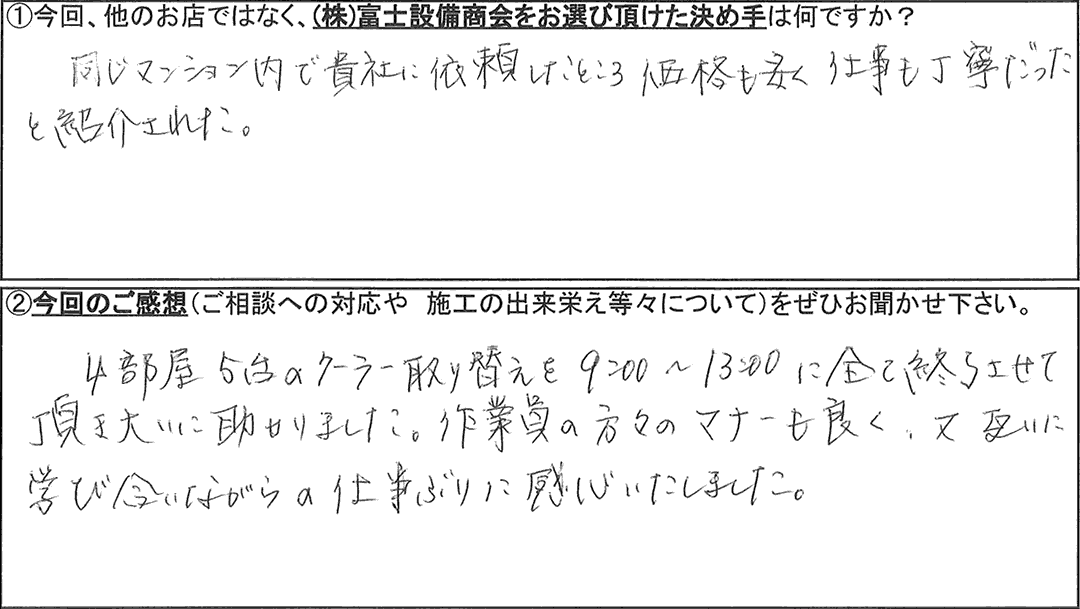 ①今回、他のお店ではなく、(株)富士設備商会をお選び頂けた決め手は何ですか？
同じマンション内で貴社に依頼したところ価格も安く仕事も丁寧だった
と紹介された。
②今回のご感想(ご相談への対応や　施工の出来栄え等々について)をぜひお聞かせ下さい。
4部屋5台のクーラー取り替えを9:00～13:00に全て終了させて
頂き大いに助かりました。作業員の方々のマナーも良く、又互いに
学び合いながらの仕事ぶりに感心いたしました。